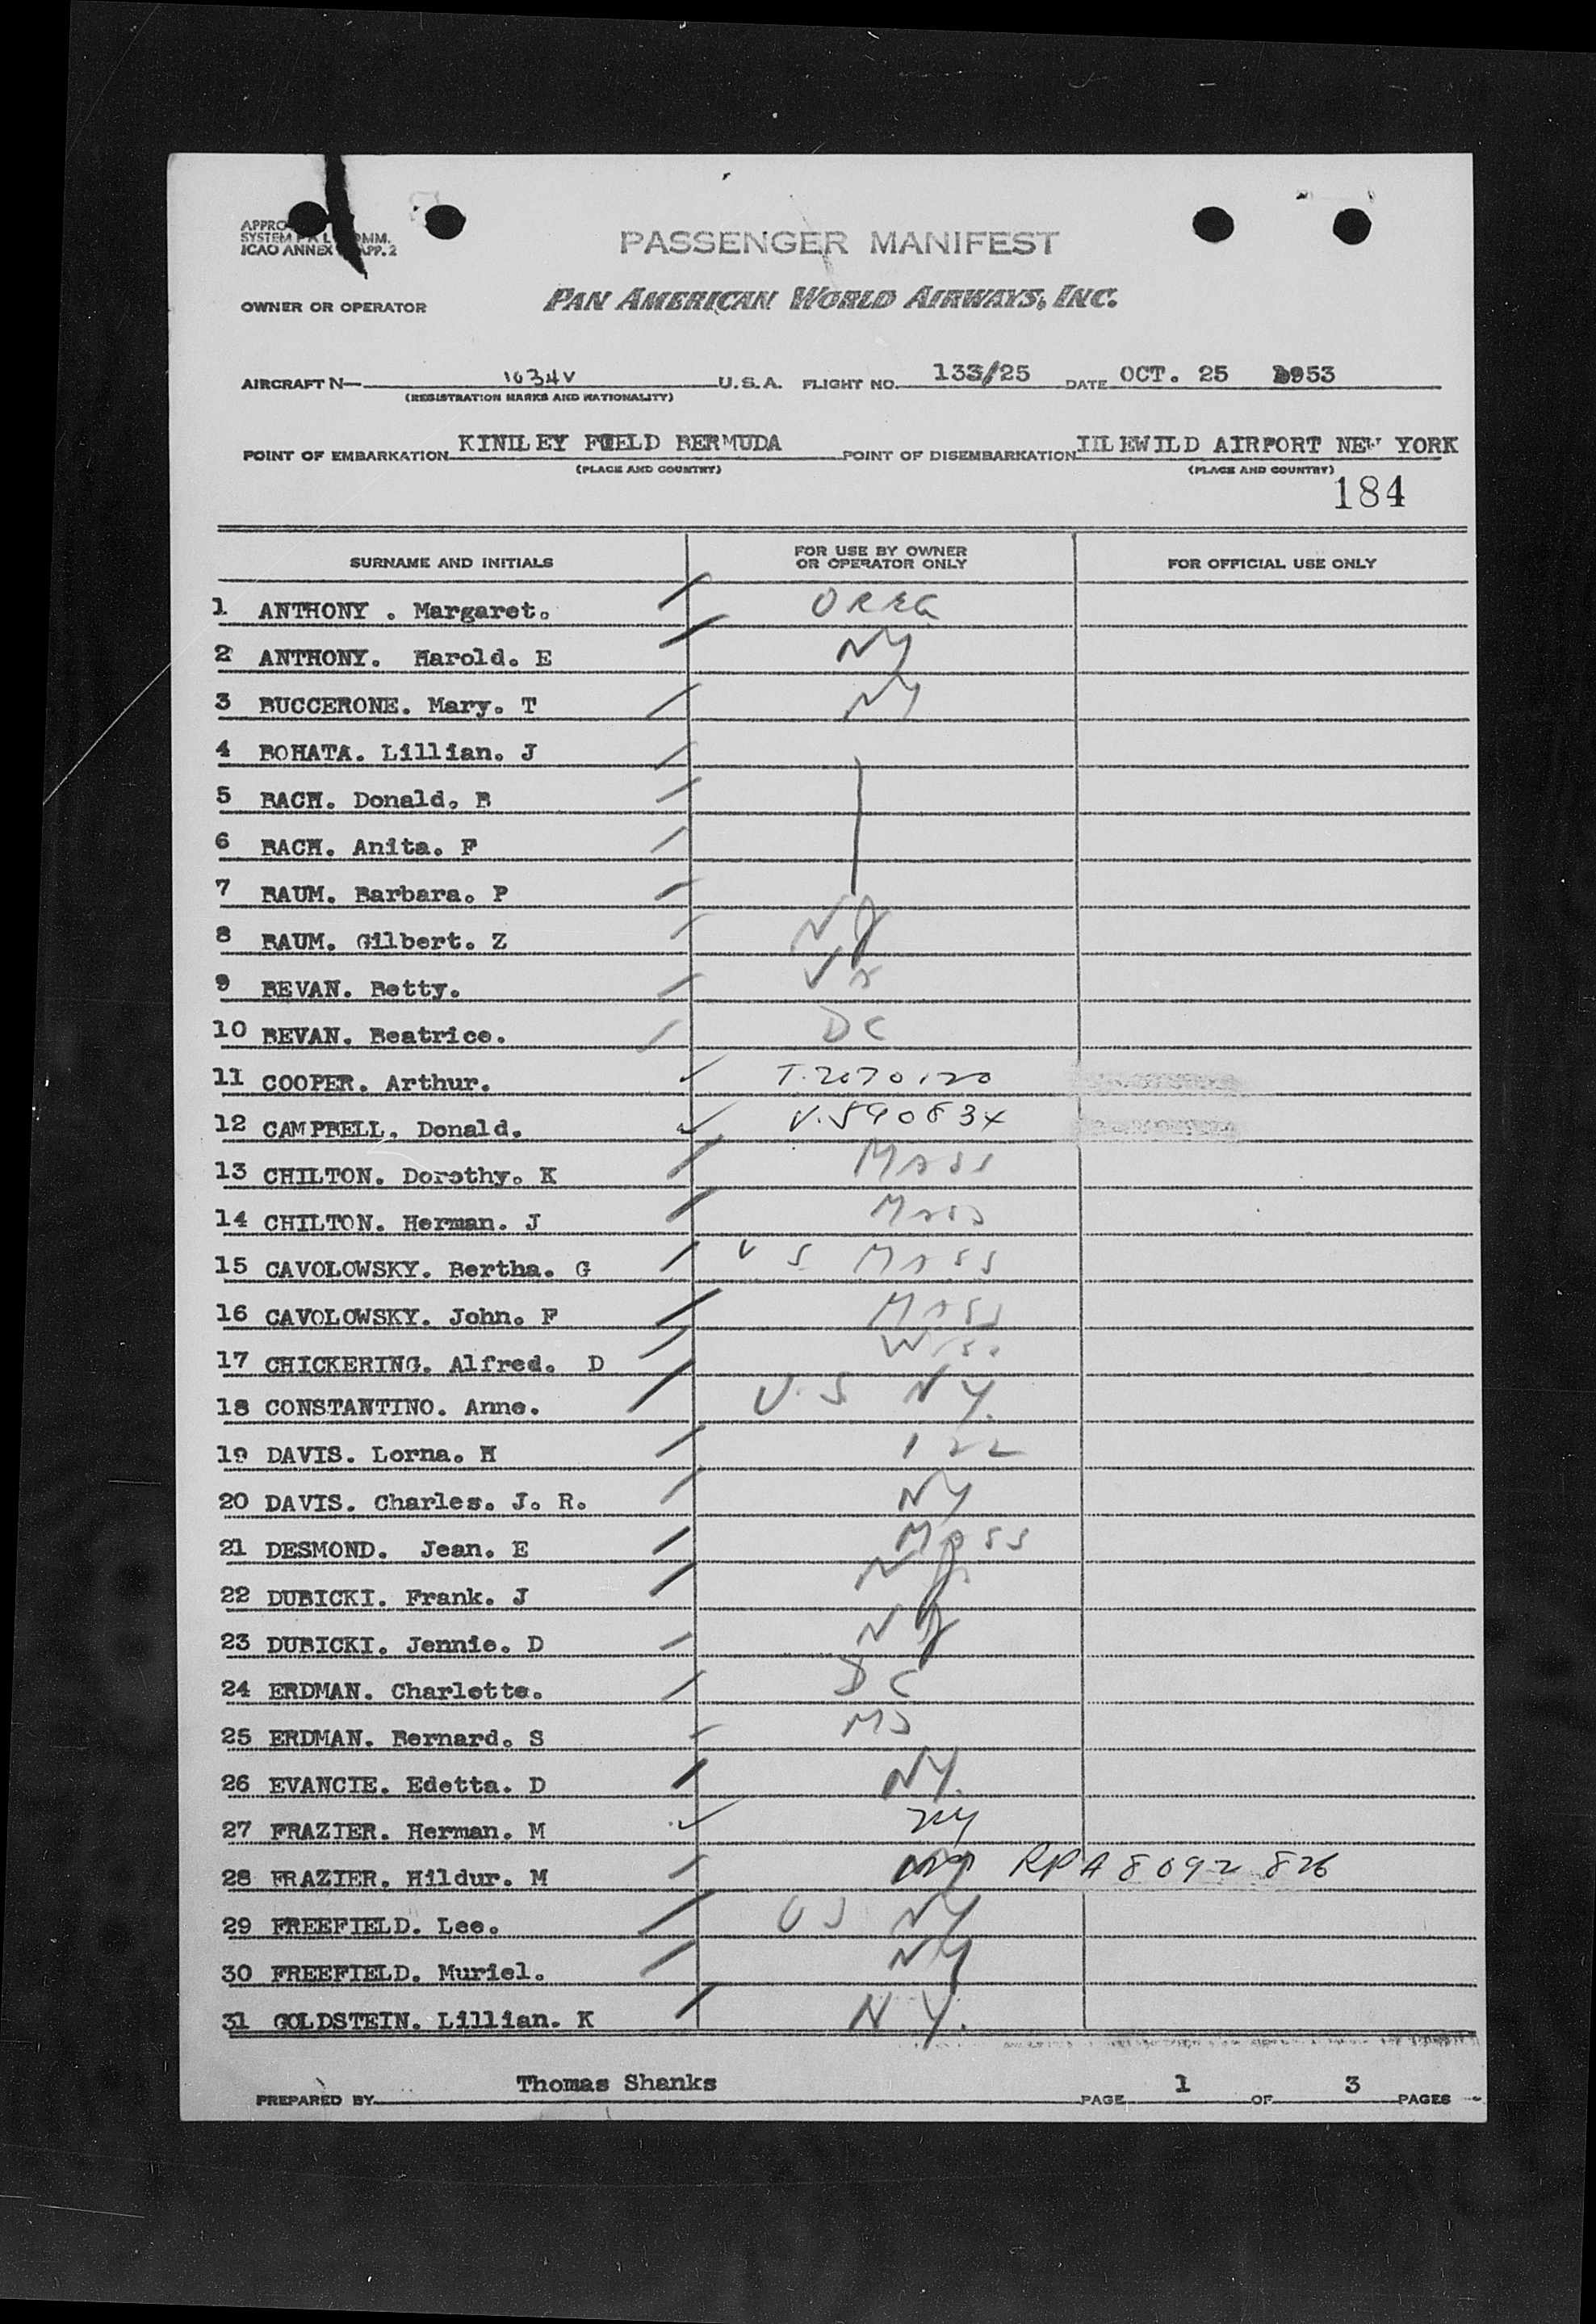 PASSENGER MANIFEST
JCAO ANNEX APP. 2
OWNER OR OPERATOR PAN AMERICAN WORLD AIRWAYS, INC.
AIRCRAFT N— 1034V U.S.A. FLIGHT NO. 133/25 DATE OCT. 25 1953
(REGISTRATION MARKS AND NATIONALITY)
POINT OF EMBARKATION KINDLEY FIELD BERMUDA POINT OF DISEMBARKATION IDLEWILD AIRPORT NEW YORK
(PLACE AND COUNTRY) (PLACE AND COUNTRY)
184
SURNAME AND INITIALS FOR USE BY OWNER OR OPERATOR ONLY FOR OFFICIAL USE ONLY
1 ANTHONY . Margaret.
2 ANTHONY. Harold. E NY
3 BUCCERONE. Mary. T NY
4 BOHATA. Lillian. J
5 BACH. Donald. B
6 BACH. Anita. F
7 BAUM. Barbara. P
8 BAUM. Gilbert. Z NJ
9 BEVAN. Betty. Va
10 BEVAN. Beatrice. DC
11 COOPER. Arthur. T.2070120
12 CAMPBELL. Donald. V.590834
13 CHILTON. Dorothy. K MASS
14 CHILTON. Herman. J MASS
15 CAVOLOWSKY. Bertha. G US MASS
16 CAVOLOWSKY. John. F MASS
17 CHICKERING. Alfred. D Wis.
18 CONSTANTINO. Anne. U.S NY.
19 DAVIS. Lorna. H 122
20 DAVIS. Charles. J. R. NY
21 DESMOND. Jean. E MASS
22 DUBICKI. Frank. J NJ
23 DUBICKI. Jennie. D NJ
24 ERDMAN. Charlotte. DC
25 ERDMAN. Bernard. S
26 EVANCIE. Edetta. D NY.
27 FRAZIER. Herman. M NY
28 FRAZIER. Hildur. M NY RPA 8092826
29 FREEFIELD. Lee. US NY
30 FREEFIELD. Muriel. NY
31 GOLDSTEIN. Lillian. K NY.
PREPARED BY Thomas Shanks PAGE 1 OF 3 PAGES